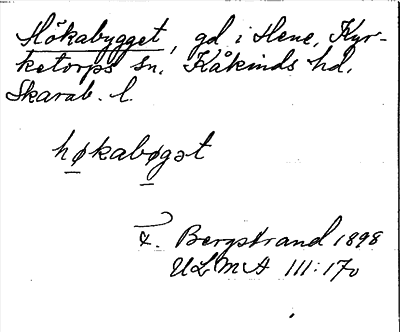 Hökabygget, gd i Hene, Kyr-
ketorps sn, Kåkinds hd,
Skarab. l.
høkabøgət
Bergstrand 1898
ULMA 111:170